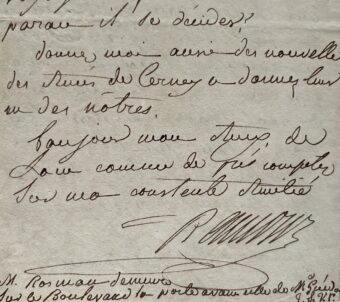 parait il se décider?
donnez moi aussi des nouvelle
des de Cernay a donnez leur
m des nôtres.
bonjour mon de
Loin comme de Près comptez
sur ma constente Amitié
M. Rosman demeure
sur le Boulevard la porte avant celle de M.